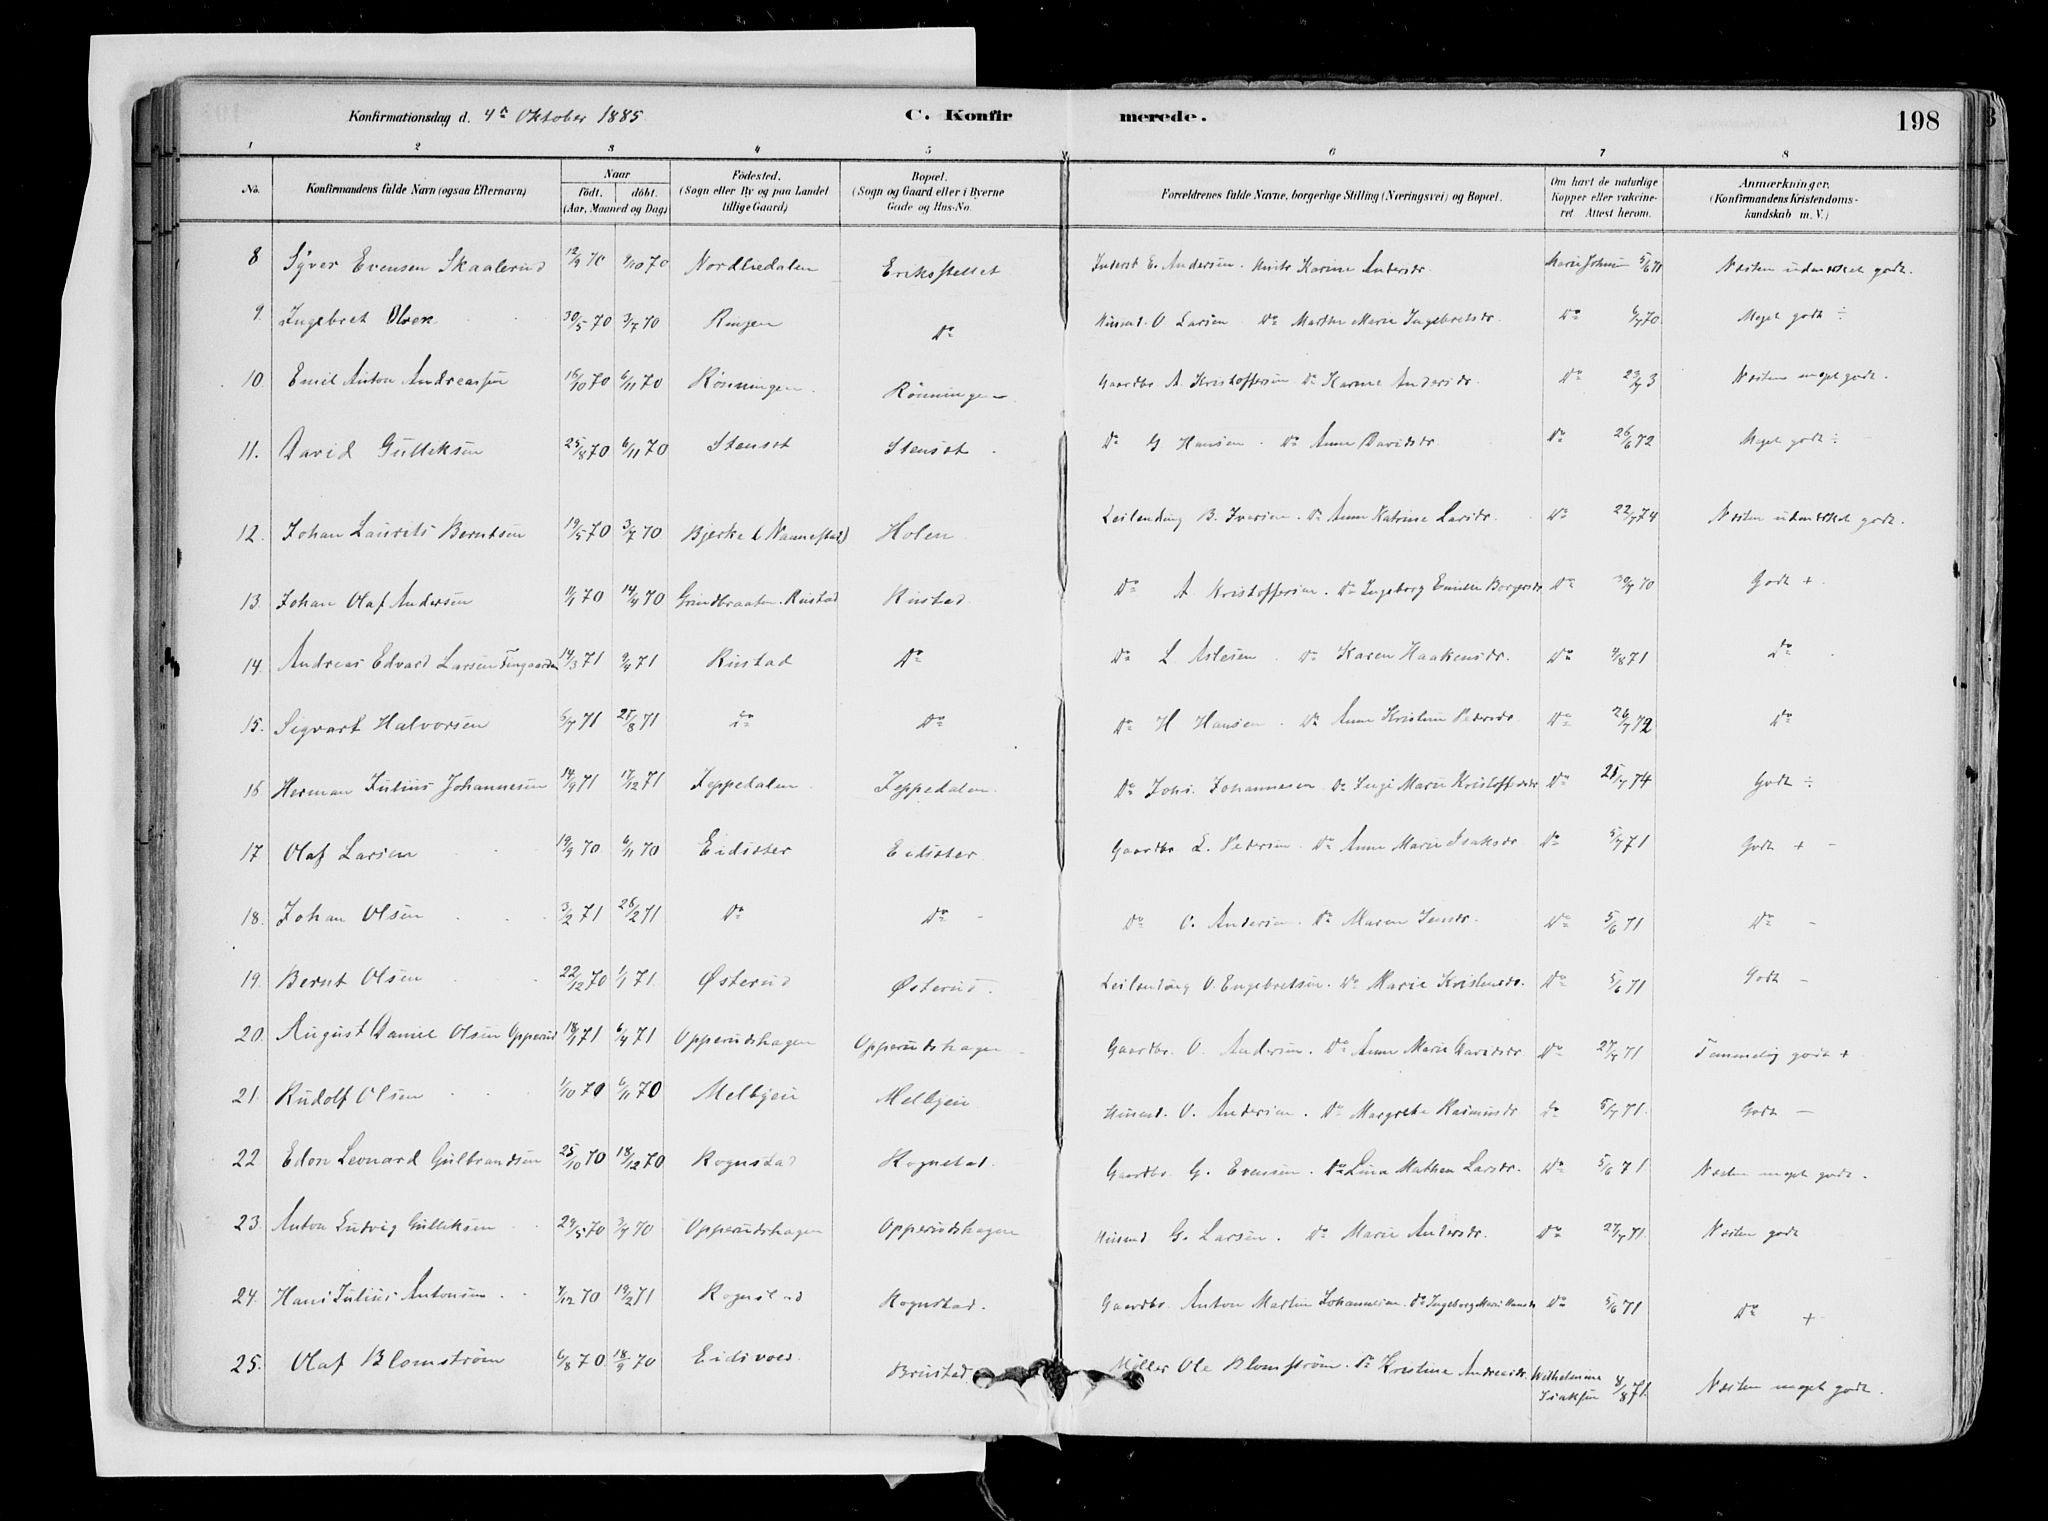 Konfirmationsdag d. 4de Oktober 1885
C. Konfir merede. 198
1 2 3 4 5 6 7 8
No. Konfirmandens fulde Navn (ogsaa Efternavn) Naar født. døbt. (Aar, Maaned og Dag) Fødested. (Sogn eller By og paa Landet tillige Gaard) Bopæl. (Sogn og Gaard eller i Byerne Gade og Hus-No. Forældrenes fulde Navne, borgerlige Stilling (Næringsvei) og Bopæl. Om havt de naturlige Kopper eller vakcineret Attest herom. Anmærkninger. (Konfirmandens Kristendomskundskab m. V.)
8 Syver Evensen Skaalerud 12/9 70 9/10 70 Nordliedalen Eriksstellet Inderst E. Andersen. Karine Andersdr. 5/6 71 Næsten udmærket godt.
9. Ingebret Olsen 30/5 70 3/7 70 Ringen Do Husmd. O. Larsen Do Marthe Marie Ingebretsdr. Do 6/7 70 Meget godt ÷
10. Emil Anton Andreassen 16/10 70 6/11 70 Rönningen. Rönningen Gaardbr. A. Kristoffersen Do Karine Andersdr. Do Næsten meget godt.
11. David Gulleksen 25/8 70 6/11 70 Stenset Stenset Do G Hansen. Do Anne Davidsdr Do 26/6 72 Meget godt ÷
12. Johan Laurits Berntsen 19/5 70 3/7 70 Bjerke (Nannestad) Holen Leilending B. Iversen. Do Anne Katrine Larsdr. Do 22/7 74 Næsten udmærket godt.
13. Johan Olaf Andersen 1/1 70 14/4 70 Grindbraaten. Rustad Rustad Do A Kristoffersen. Do Ingeborg Emilie Borgersdr Do 30/7 70 Godt +
14. Andreas Edvard Larsen 14/3 71 9/4 71 Rustad Do Do L Aslesen Do Karen Haakensdr. Do 4/8 71 Do
15. Sigvart Halvorsen 6/7 71 27/8 71 Do Do Do H Hansen. Do Anne Kristine Pedersdr Do 26/7 72 Do
16 Herman Julius Johannesen 14/9 71 17/12 71 Jeppedalen Jeppedalen. Do Johs. Johannesen Do Inge Marie Kristoffersdr Do 25/7 74 Godt ÷
17 Olaf Larsen 19/9 70 6/11 70 Eidsster Eidsster Gaardbr L. Pedersen. Do Anne Marie Isaksdr Do 5/7 71 Godt + -
18. Johan Olsen 3/2 71 26/2 71 Do Do Do O. Andersen. Do Maren Jensdr. Do 5/6 71 Do -
19. Bernt Olsen 22/12 70 1/1 71 Østerud Østerud. Leilending O. Engebretsen. Do Marie Kristensdr. Do 5/6 71 Godt -
20. August Daniel Olsen Opperud 18/1 71 6/4 71 Opperudshagen Opperudshagen Gaardbr. O. Andersen. Do Anne Marie Davidsdr Do 27/7 71 Temmelig godt +
21. Rudolf Olsen 1/10 70 6/11 70 Melbyeie Melbyeie Husmd. O. Andersen. Do Margrete Rasmusdr do 5/7 71. Godt -
22 Edon Leonard Gulbrandsen 25/10 70 18/12 70 Rognstad Rognstad. Gaardbr. G. Evensen. Do Lina Mathea Larsdr. Do 5/6 71 Næsten meget godt.
23. Anton Ludvig Gulleksen 29/5 70 3/7 70 Opperudshagen Opperudshagen Husmd G. Larsen. Do Marie Andersdr. Do 27/7 71 Næsten godt
24. Hans Julius Antonsen 7/12 70 19/2 71 Rognstad Rognstad. Gaardbr. Anton Martin Johannesen. Do Ingeborg Marie Hansdr Do 5/6 71 Do +
25. Olaf Blomstrøm 6/8 70. 18/9 70 Eidsvold. Brustad Møller Ole Blomstrøm. Do Kristine Andreasdr. Wilhelmine Isaksen 8/8 71 Næsten meget godt.